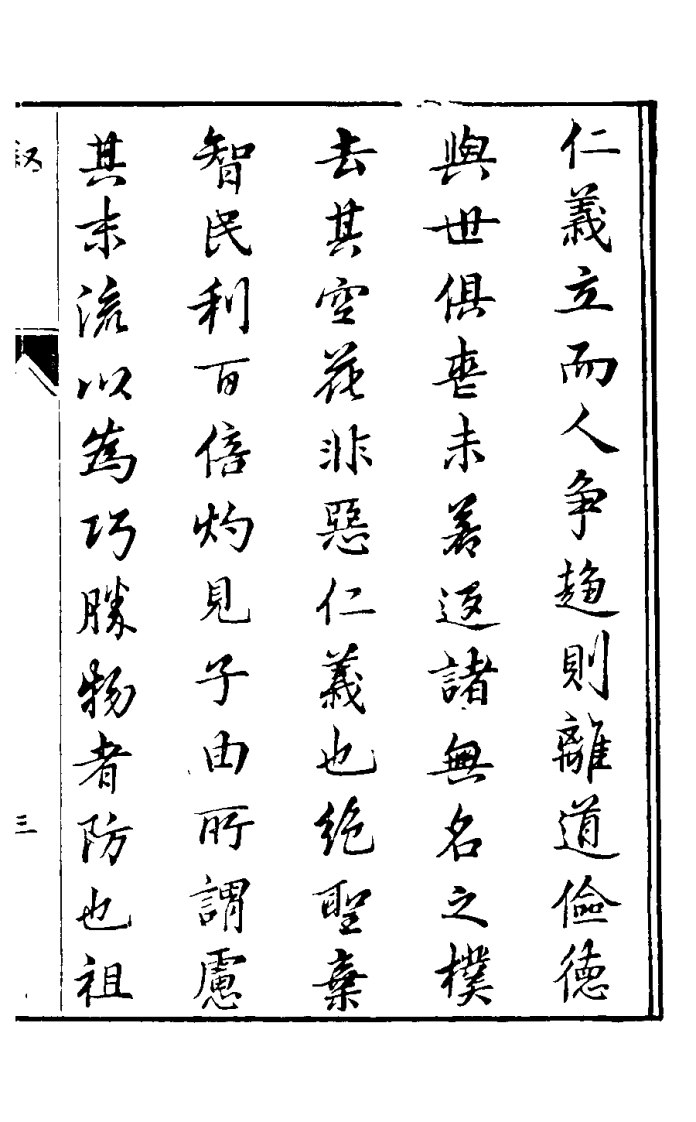 仁義立而人争趨則離道儉德
與世俱喪未若返諸無名之樸
去其空花非惡仁義也絶聖棄
智民利百倍灼見子由所謂慮
其末流以為巧勝物者防也祖
叙
三